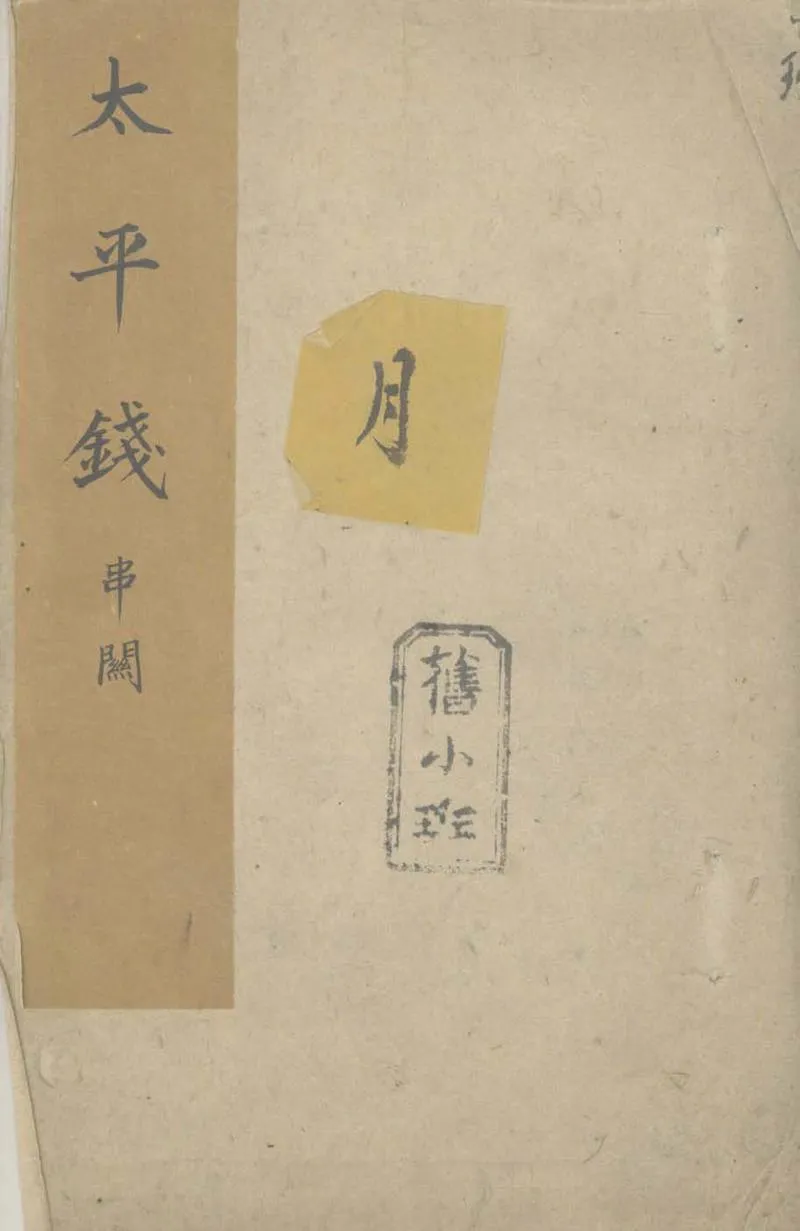 太平錢 串關
月
舊小班